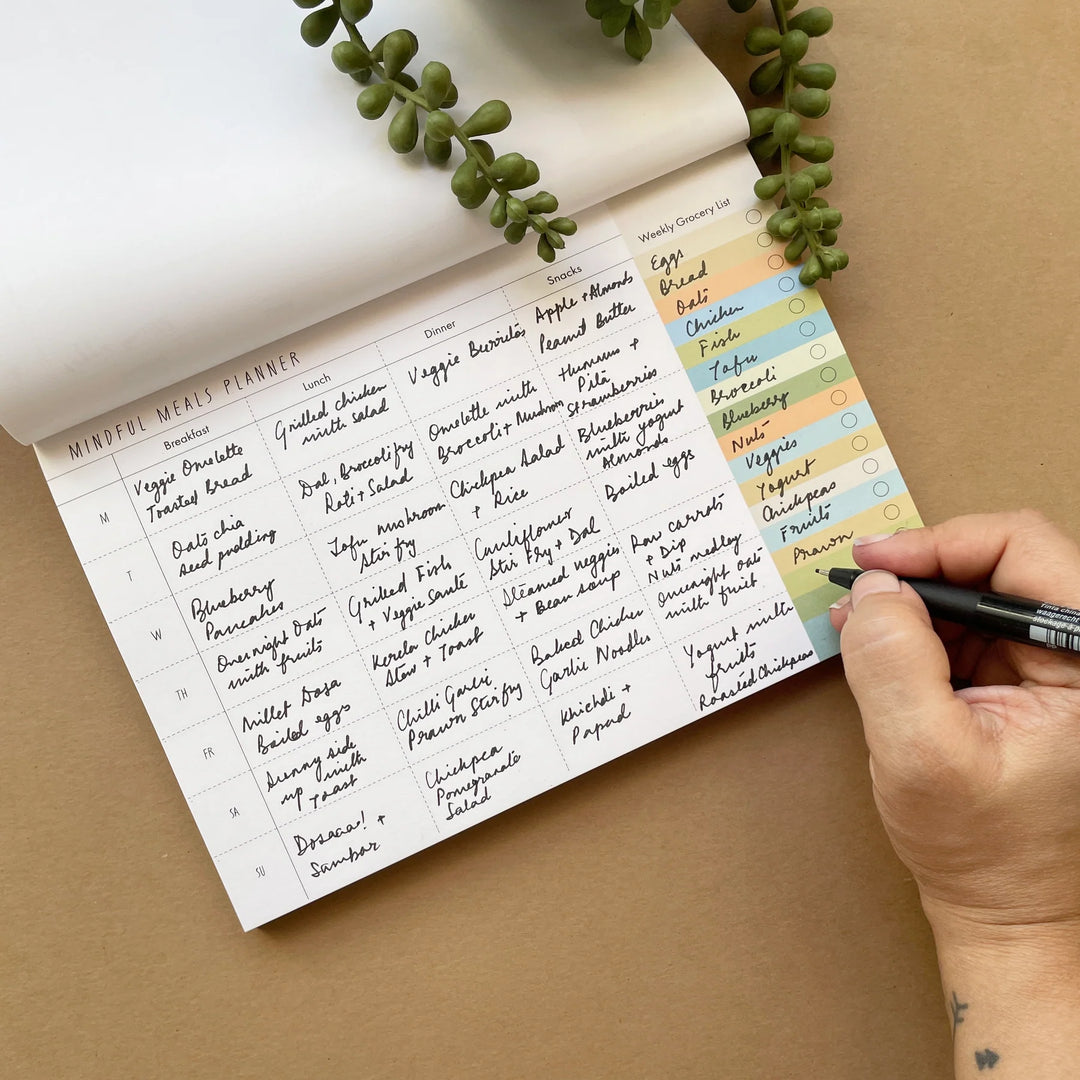 MINDFUL MEALS PLANNER
Breakfast
Lunch
Dinner
Snacks
M
Veggie Omelette
Toasted Bread
Grilled chicken
with salad
Veggie Burritos
Apple + Almonds
Peanut Butter
T
Oats chia
seed pudding
Dal, Broccoli fry
Roti + Salad
Omelette with
Broccoli + Mushroom
Hummus +
Pita
Strawberries
W
Blueberry
Pancakes
Tofu mushroom
Stir fry
Chickpea Salad
+ Rice
Blueberries
with yogurt
Almonds
TH
Overnight Oats
with fruits
Grilled Fish
+ Veggie Sauté
Cauliflower
Stir Fry + Dal
Boiled eggs
FR
Millet Dosa
Boiled eggs
Kerela Chicken
Stew + Toast
Steamed veggies
+ Bean soup
Raw carrots
+ Dip
Nuts medley
SA
Sunny side
up with
Toast
Chilli Garlic
Prawn Stirfry
Baked Chicken
Garlic Noodles
Overnight oats
with fruit
SU
Dosaaa! +
Sambar
Chickpea
Pomegranate
Salad
Khichdi +
Papad
Yogurt with
fruits
Roasted Chickpeas
Weekly Grocery List
Eggs
Bread
Oats
Chicken
Fish
Tofu
Broccoli
Blueberry
Nuts
Veggies
Yogurt
Chickpeas
Fruits
Prawn